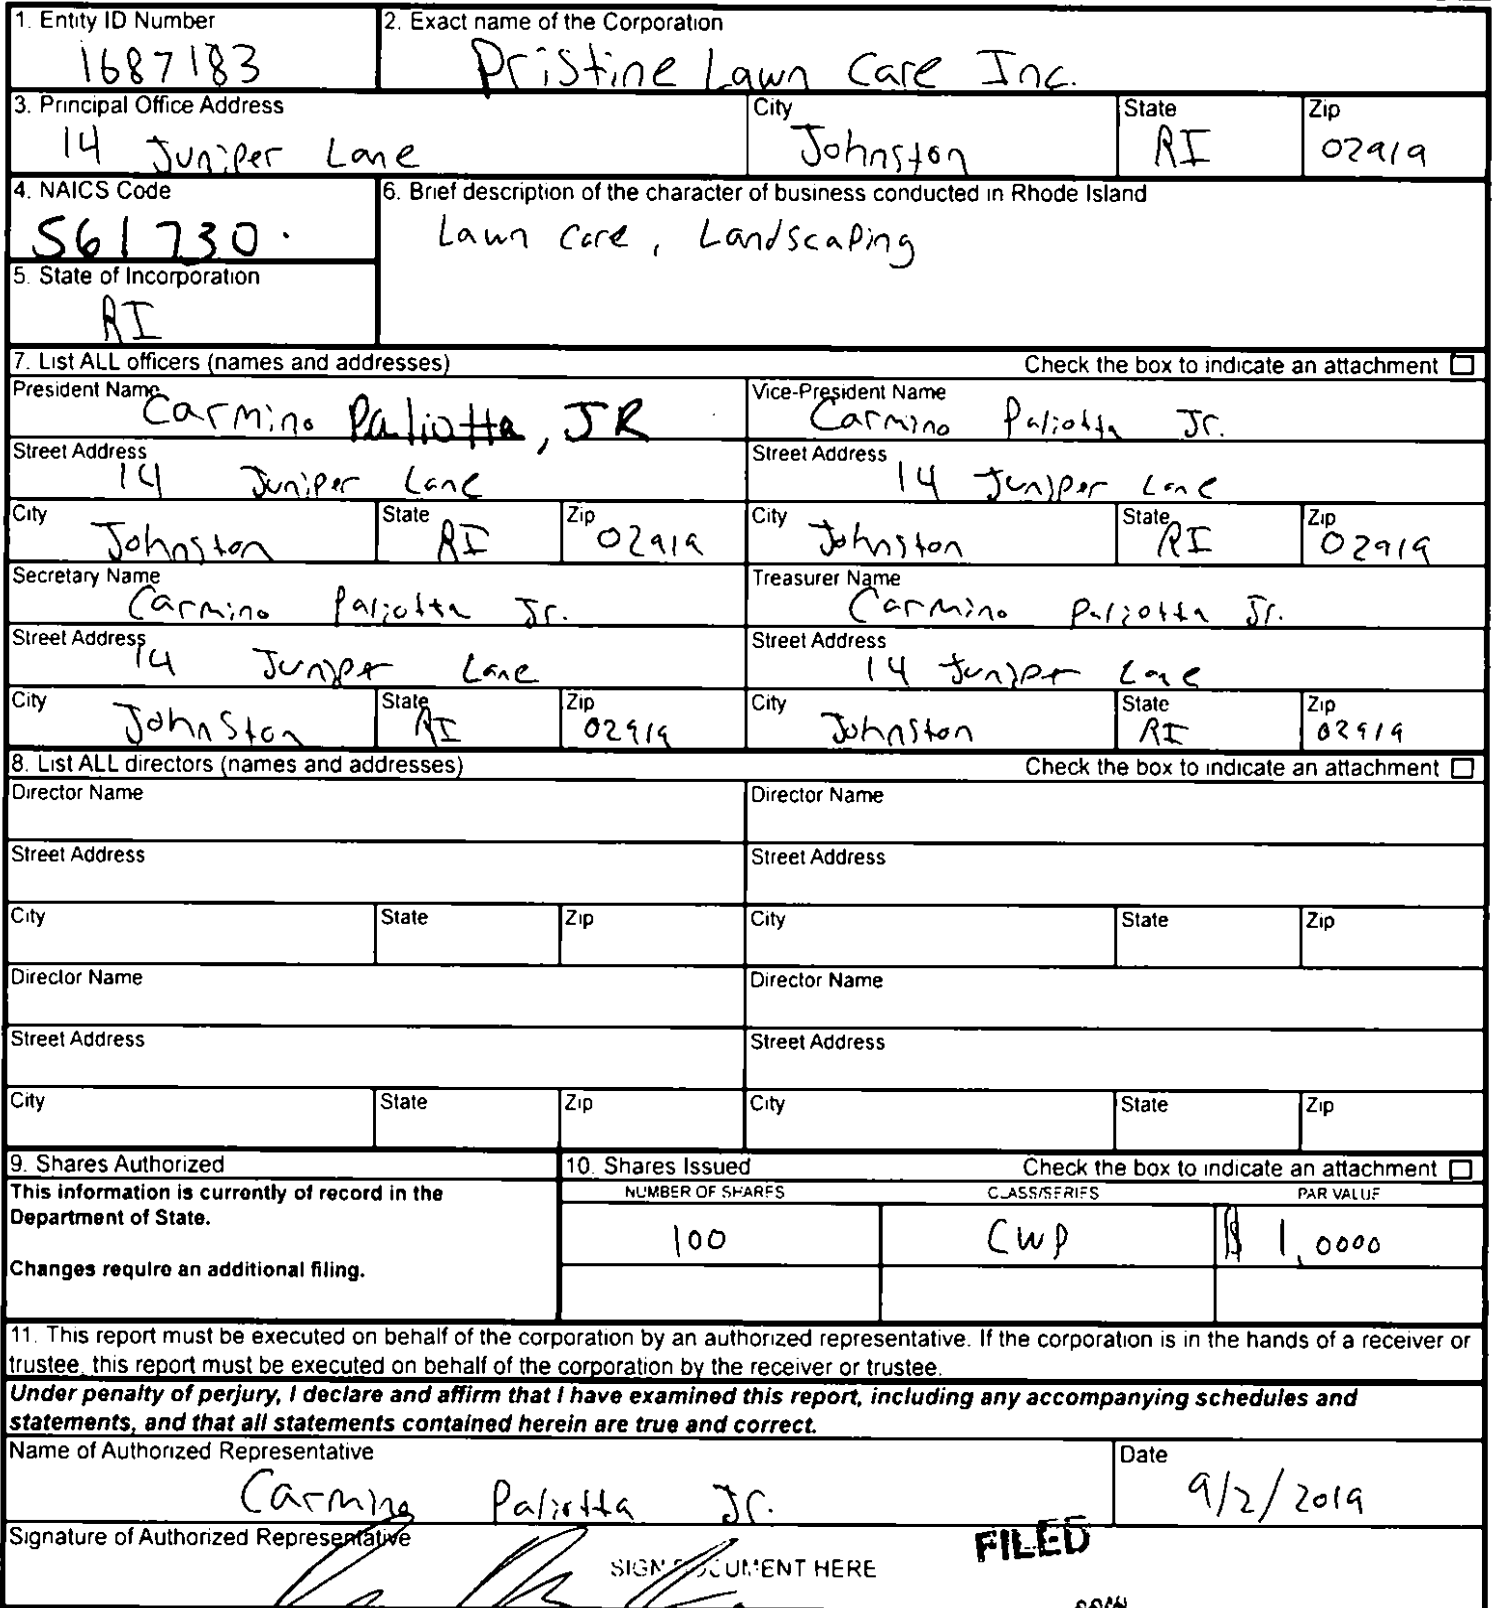 1. Entity ID Number
1687183
2. Exact name of the Corporation
Pristine Lawn Care Inc.
3. Principal Office Address
14 Juniper Lane
City
Johnston
State
RI
Zip
02919
4. NAICS Code
561730.
6. Brief description of the character of business conducted in Rhode Island
Lawn Care, Landscaping
5. State of Incorporation
RI
7. List ALL officers (names and addresses)
Check the box to indicate an attachment
President Name
Carmino Paliotta, JR
Vice-President Name
Carmino Paliotta Jr.
Street Address
14 Juniper Lane
Street Address
14 Juniper Lane
City
Johnston
State
RI
Zip
02919
City
Johnston
State
RI
Zip
02919
Secretary Name
Carmino Paliotta Jr.
Treasurer Name
Carmino Paliotta Jr.
Street Address
14 Juniper Lane
Street Address
14 Juniper Lane
City
Johnston
State
RI
Zip
02919
City
Johnston
State
RI
Zip
02919
8. List ALL directors (names and addresses)
Check the box to indicate an attachment
Director Name
Director Name
Street Address
Street Address
City
State
Zip
City
State
Zip
Director Name
Director Name
Street Address
Street Address
City
State
Zip
City
State
Zip
9. Shares Authorized
This information is currently of record in the
Department of State.
Changes require an additional filing.
10. Shares Issued
Check the box to indicate an attachment
NUMBER OF SHARES
CLASS/SERIES
PAR VALUE
100
CWP
$ 1.0000
11. This report must be executed on behalf of the corporation by an authorized representative. If the corporation is in the hands of a receiver or
trustee, this report must be executed on behalf of the corporation by the receiver or trustee.
Under penalty of perjury, I declare and affirm that I have examined this report, including any accompanying schedules and
statements, and that all statements contained herein are true and correct.
Name of Authorized Representative
Carmino Paliotta Jr.
Date
9/2/2019
Signature of Authorized Representative
SIGN DOCUMENT HERE
FILED